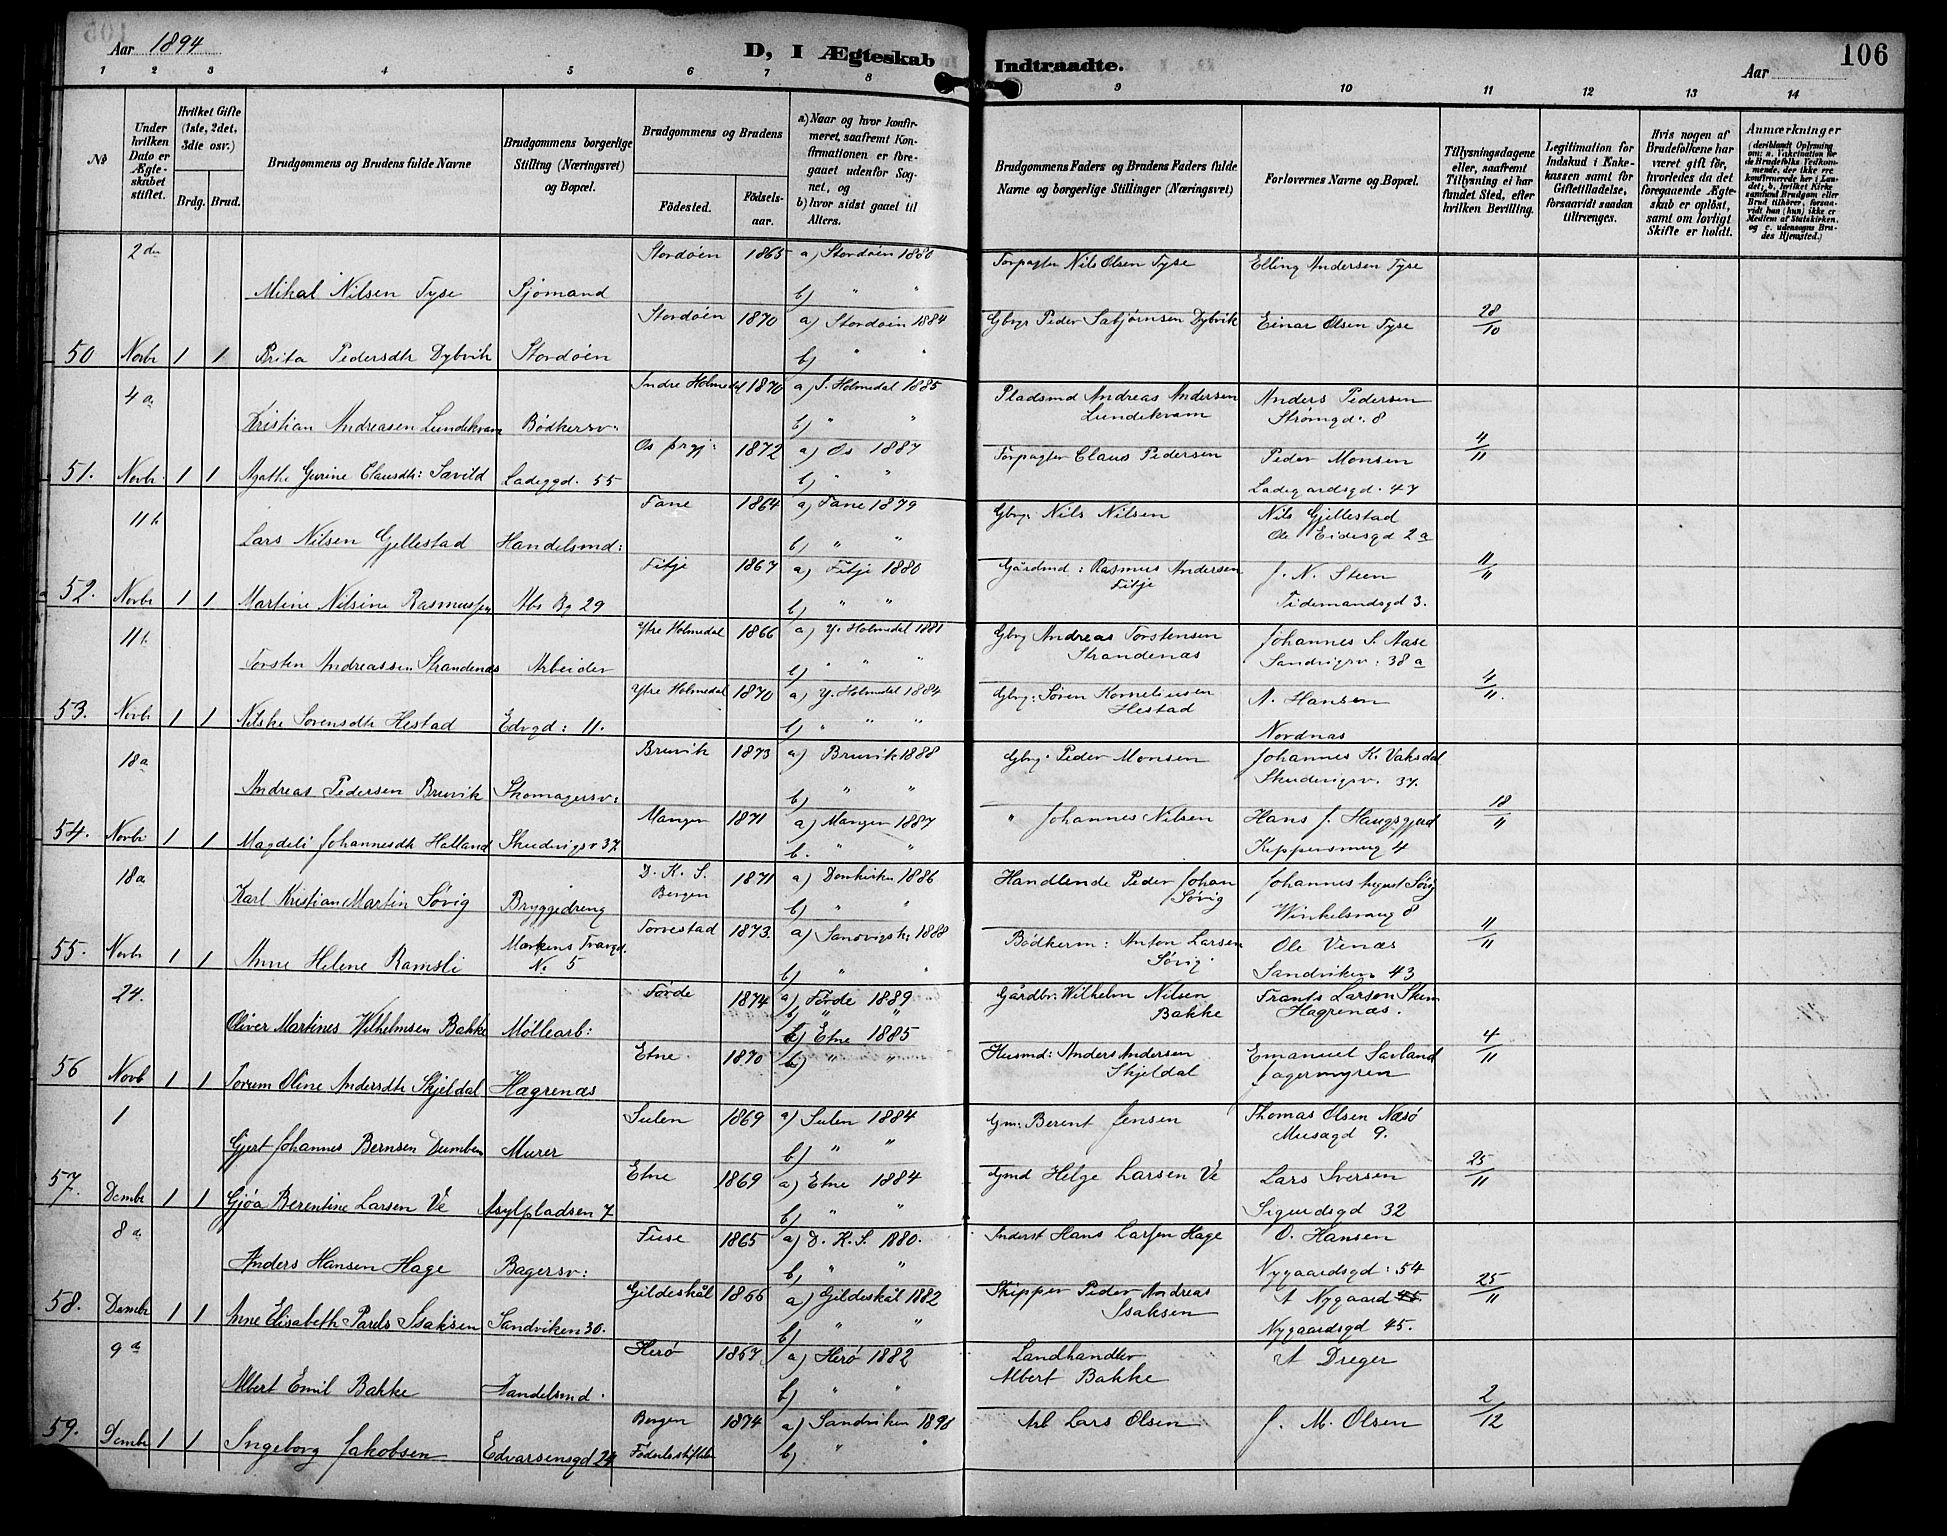 Aar 1894
D, I Ægteskab Indtraadte.
Aar
106
1 2 3 4 5 6 7 8 9 10 11 12 13 14
No
Under hvilken Dato er Ægteskabet stiftet.
Hvilket Gifte (1ste, 2det, 3die osv.)
Brdg. Brud.
Brudgommens og Brudens fulde Navne
Brudgommens borgerlige Stilling (Næringsvei) og Bopæl.
Brudgommens og Brudens
Fødested.
Fødselsaar.
a) Naar og hvor konfirmeret, saafremt Konfirmationen er foregaaet udenfor Sognet, og
b) hvor sidst gaaet til Alters.
Brudgommens Faders og Brudens Faders fulde Navne og borgerlige Stillinger (Næringsvei)
Forlovernes Navne og Bopæl.
Tillysningsdagene eller, saafremt Tillysning ei har fundet Sted, efter hvilken Bevilling.
Legitimation for Indskud i Enkekassen samt for Giftetilladelse, forsaavidt saadan tiltrænges.
Hvis nogen af Brudefolkene har været gift før, hvorledes da det foregaaende Ægteskab er opløst, samt om lovligt Skifte er holdt.
Anmærkninger (deriblandt Oplysning om: a. Vakcination for de Brudefolks Vedkommende, der ikke ere konfirmerede her i Landet; b. hvilket Kirkesamfund Brudgom eller Brud tilhører, forsaavidt hun (han) ikke er Medlem af Statskirken, og c. udensogns Brudes Hjemsted.)
2den Stordøen 1865 a) Stordøen 1880 Forpagter Nils Olsen Tyse Elling Andersen Tyse
Mikal Nilsen Tyse Sjømand b) " "
Stordøen 1870 a) Stordøen 1884 Gbrgr Peder Sabjørnsen Dybvik Einar Olsen Tyse 28/10
50 Novbr 1 1 Brita Pedersdtr Dybvik Stordøen b) " "
4de Indre Holmedal 1870 a) I. Holmedal 1885 Pladsmd Andreas Andersen Lundekvam Anders Pedersen Strømgd: 8
Kristian Andreasen Lundekvam Bødkersv: b) " "
Os prgj: 1872 a) Os 1887 Forpagter Claus Pedersen Peder Monsen 4/11
51. Novbr 1 1 Agathe Gurine Clausdtr: Sævild Ladeggd. 55 b) " " Ladegaardsgd. 47
11te Fane 1864 a) Fane 1879 Gbrg: Nils Nilsen Nils Gjellestad
Lars Nilsen Gjellestad Handelsmd: b) " " Ole Eidesgd 2a
Fitje 1867 a) Fitje 1880 Gårdmd: Rasmus Andersen Fitje J. N. Steen 11/11
52. Novbr 1 1 Martine Nilsine Rasmussen Abs Bg 29 b) " " Tidemandsgd 3.
11te Ytre Holmedal 1866 a) Y. Holmedal 1881 Gbrg Andreas Torstensen Strandenæs Johannes S. Aase
Torsten Andreassen Strandenæs Arbeider b) " " Sandvigsv: 38a
Ytre Holmedal 1870 a) Y. Holmedal 1884 Gbrg: Søren Korneliusen Hestad A. Hansen 4/11.
53. Novbr 1 1 Nilske Sørensdtr Hestad Edvgd: 11. b) " " Nordnæs
18de Bruvik 1873 a) Bruvik 1888 Gbrg: Peder Monsen Johannes K. Vaksdal
Andreas Pedersen Bruvik Skomagersv: b) " " Skudevigsv. 37.
Manger 1871 a) Manger 1887 " Johannes Nilsen Hans J. Haugsgjerd 18/11
54. Novbr 1 1 Magdeli Johannesdtr Halland Skudevigsv 37. b. " " Kippersmug 4
18de D. K. S. Bergen 1871 a) Domkirken 1886 Handlende Peder Johan Søvig Johannes August Søvig
Karl Kristian Martin Søvig Bryggedreng b) " " Winkelsmug 8
Torvestad 1873. a) Sandvigsk: 1888 Bødkerm: Anton Larsen Søvig Ole Venæs 11/11
55. Novbr 1 1 Anne Helene Ramsli Markens Tværgd. No 5 b) " " Sandviken 43
24. Førde 1874 a) Førde 1889 Gårdbr: Wilhelm Nilsen Bakke Frants Larsen
Oliver Martines Wilhelmsen Bakke Møllearb: b) " " Hægrenæs.
Etne. 1870 a) Etne 1885 Husmd: Anders Andersen Skjeldal Emanuel Sævland 4/11
56 Novb 1 1 Torum Oline Andersdtr Skjeldal Hægrenæs b) " " Fagermyren
1 Sulen 1869 a) Sulen 1884 Gm: Berent Jensen Thomas Olsen Næsø
Gjert Johannes Bernsen Dumben Murer b) " " Musægd 9.
Etne 1869 a) Etne 1884 Gmd Helge Larsen Ve Lars Iversen 25/11
57. Dcmbr 1 1 Gjøa Berentine Larsen Ve Asylpladsen 7 b) " " Sigurdsgd 32
8de Fuse 1865 a) D. K. S. 1880. Inderst Hans Larsen Hage O. Hansen
Anders Hansen Hage Bagersv: b) " " Nygaardsgd: 54
Gildeskål 1866 a) Gildeskål 1882 Skipper Peder Andreas Isaksen A Nygaard 45 25/11
58. Dcmbr 1 1 Anne Elisabeth Isaksen Sandviken 30. b) " " Nygaardsgd 45.
9de Herø 1867 a) Herø 1882 Landhandler Albert Bakke A Dreger
Albert Emil Bakke Handelsmd. b) " "
Bergen 1874 a) Sandviken 1890 Arb Lars Olsen J. M. Olsen 2/12
59. Dcmbr 1 1 Ingeborg Jakobsen Edvarsensgd 24 Fødselsstiftelsen b) " "